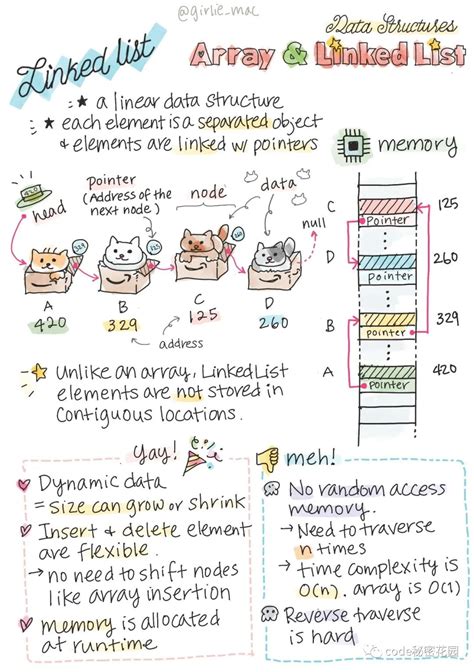 @girlie_mac
Data Structures
Linked list
Array & Linked List
★ a linear data structure
★ each element is a separated object
& elements are linked w/ pointers
memory
pointer
(Address of the
next node)
node
data
420
head
329
125
260
null
A
B
C
D
420
329
125
260
address
C
125
pointer
D
260
pointer
B
329
pointer
A
420
pointer
Unlike an array, Linked List
elements are not stored in
Contiguous locations.
Yay!
Dynamic data
= size can grow or shrink
Insert & delete element
are flexible.
→ no need to shift nodes
like array insertion
memory is allocated
at runtime
meh!
No random access
memory.
→ Need to traverse
n times
→ time complexity is
O(n). array is O(1)
Reverse traverse
is hard
code秘密花园